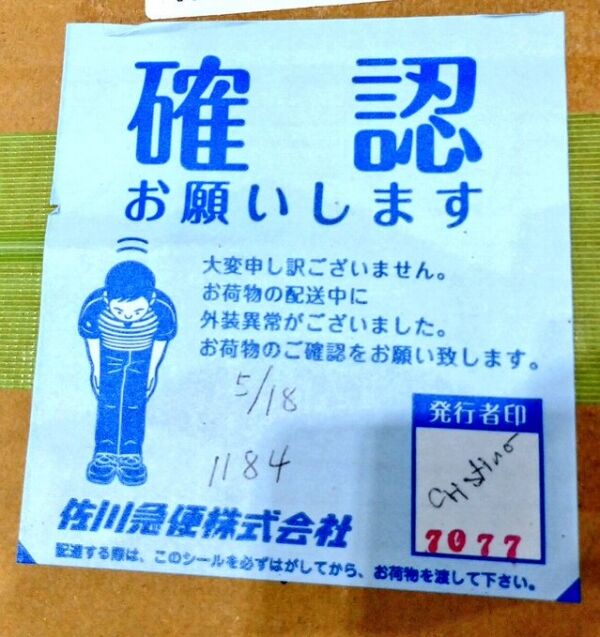 確認
お願いします
大変申し訳ございません。
お荷物の配送中に
外装異常がございました。
お荷物のご確認をお願い致します。
5/18
1184
発行者印
7077
佐川急便株式会社
配達する際は、このシールを必ずはがしてから、お荷物を渡して下さい。